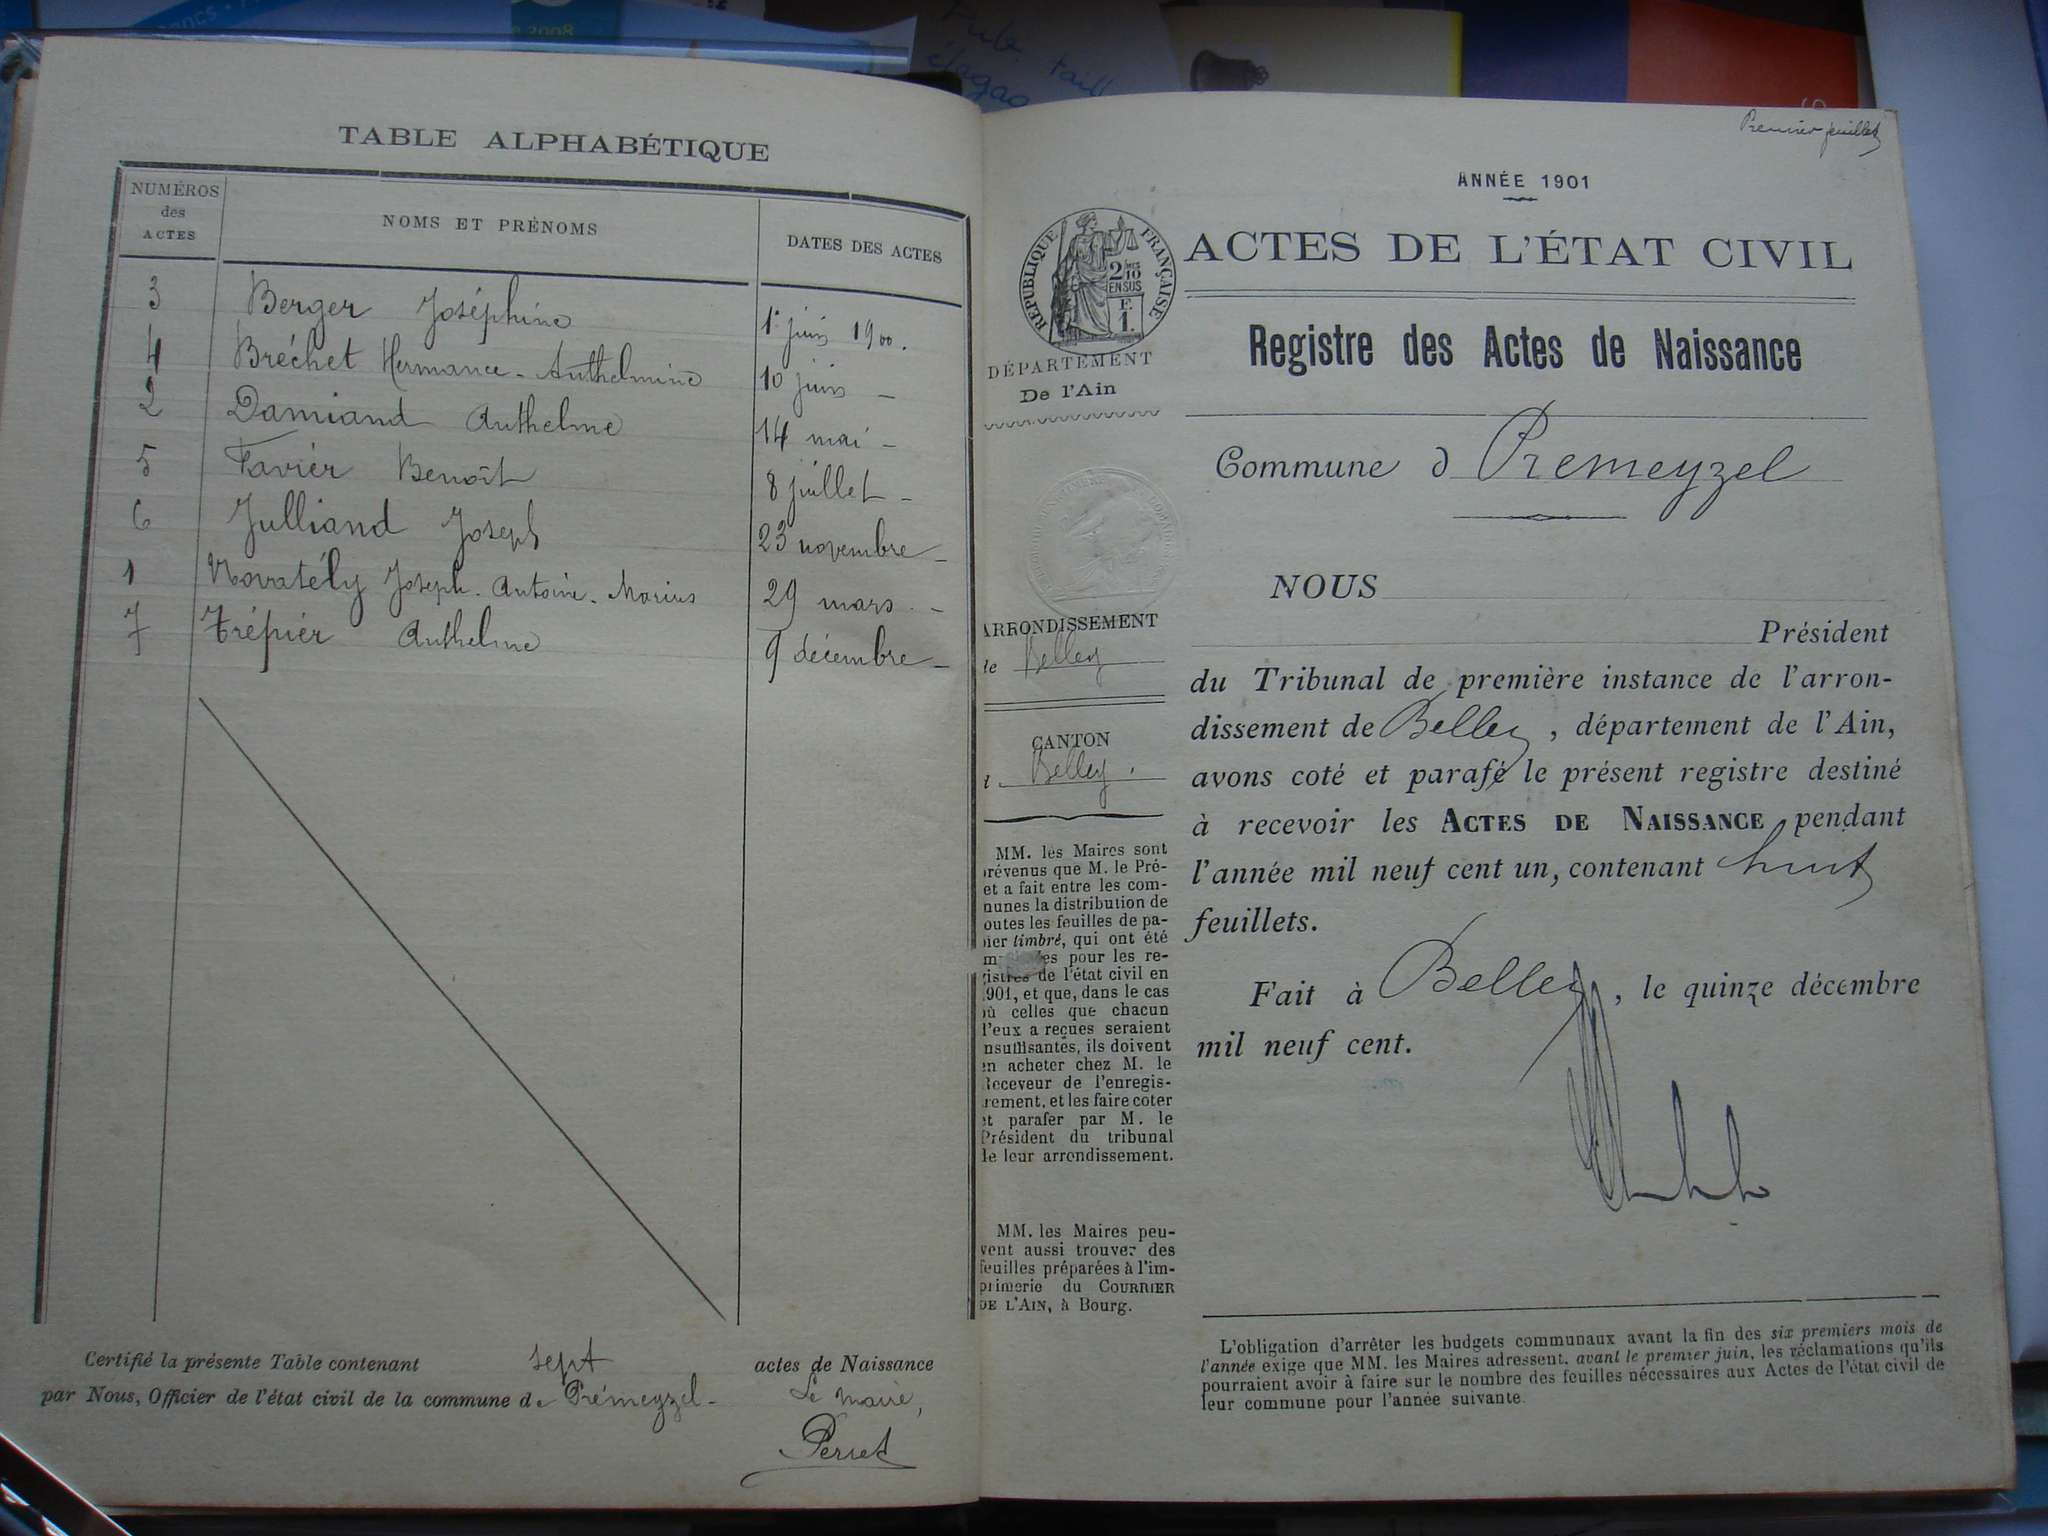 TABLE ALPHABÉTIQUE
NUMÉROS
des
ACTES
NOMS ET PRÉNOMS
DATES DES ACTES
3 Berger Joséphine 1er juin 1900.
4 Bréchet Hermance-Anthelmine 10 juin -
2 Damiand Anthelme 14 mai -
5 Favier Benoît 8 juillet -
6 Julliand Joseph 23 novembre -
1 Novatély Joseph-Antoine-Marius 29 mars -
7 Trépier Anthelme 9 décembre -
Certifié la présente Table contenant sept actes de Naissance
par Nous, Officier de l'état civil de la commune de Prémeyzel-
Le Maire,
Perret
Premier feuillet
ANNÉE 1901
RÉPUBLIQUE FRANÇAISE
2
10
EN SUS
F.
1.
ACTES DE L'ÉTAT CIVIL
Registre des Actes de Naissance
DÉPARTEMENT
De l'Ain
Commune d Premeyzel
ARRONDISSEMENT
de Belley
CANTON
Belley.
MM. les Maires sont
prévenus que M. le Pré-
et a fait entre les com-
munes la distribution de
toutes les feuilles de pa-
pier timbré, qui ont été
pour les re-
gistres de l'état civil en
1901, et que, dans le cas
où celles que chacun
d'eux a reçues seraient
insuffisantes, ils doivent
en acheter chez M. le
Receveur de l'enregis-
trement, et les faire coter
et parafer par M. le
Président du tribunal
de leur arrondissement.
MM. les Maires peu-
vent aussi trouver des
feuilles préparées à l'im-
primerie du COURRIER
DE L'AIN, à Bourg.
NOUS
Président
du Tribunal de première instance de l'arron-
dissement de Belley, département de l'Ain,
avons coté et parafé le présent registre destiné
à recevoir les ACTES DE NAISSANCE pendant
l'année mil neuf cent un, contenant huit
feuillets.
Fait à Belley, le quinze décembre
mil neuf cent.
L'obligation d'arrêter les budgets communaux avant la fin des six premiers mois de
l'année exige que MM. les Maires adressent, avant le premier juin, les réclamations qu'ils
pourraient avoir à faire sur le nombre des feuilles nécessaires aux Actes de l'état civil de
leur commune pour l'année suivante.